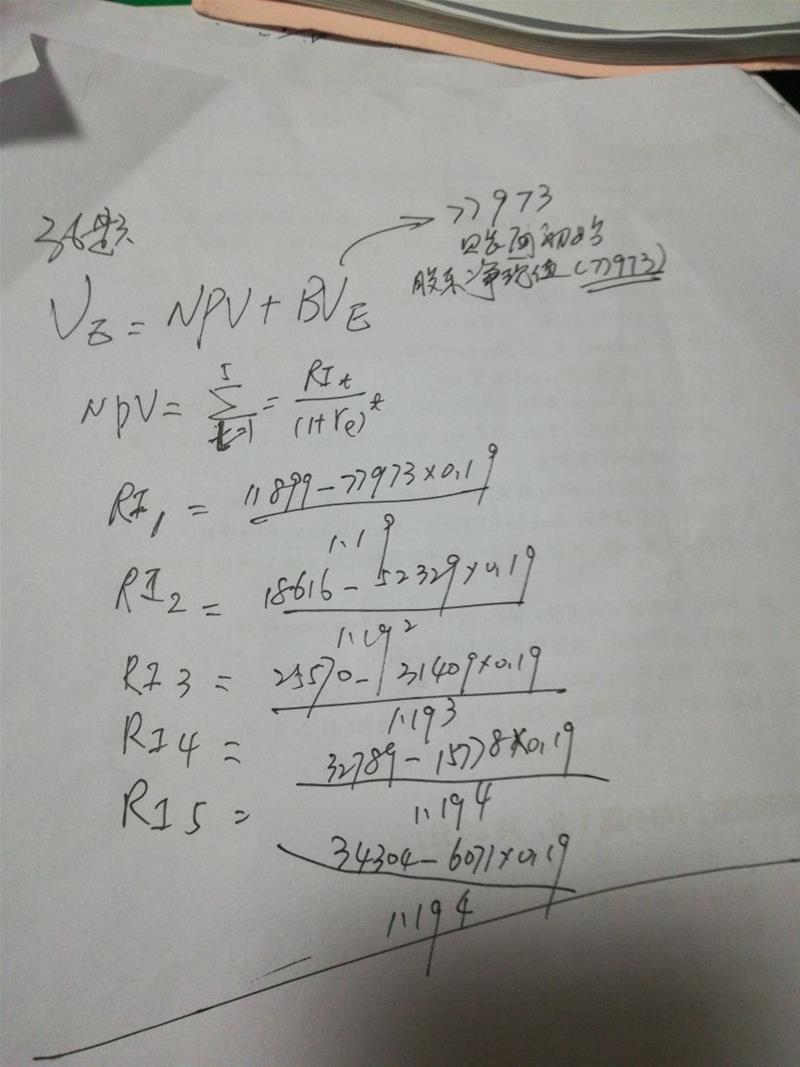 36题
77973
账面初始
股东净现值(77973)
V_E = NPV + BV_E
NPV = \sum_{t=1}^{5} = \frac{RI_t}{(1+r_e)^t}
RI_1 = \frac{11899-77973×0.19}{1.19}
RI_2 = \frac{18616-52329×0.19}{1.19^2}
RI_3 = \frac{25570-31409×0.19}{1.19^3}
RI_4 = \frac{32789-15778×0.19}{1.19^4}
RI_5 = \frac{34304-6071×0.19}{1.19^4}